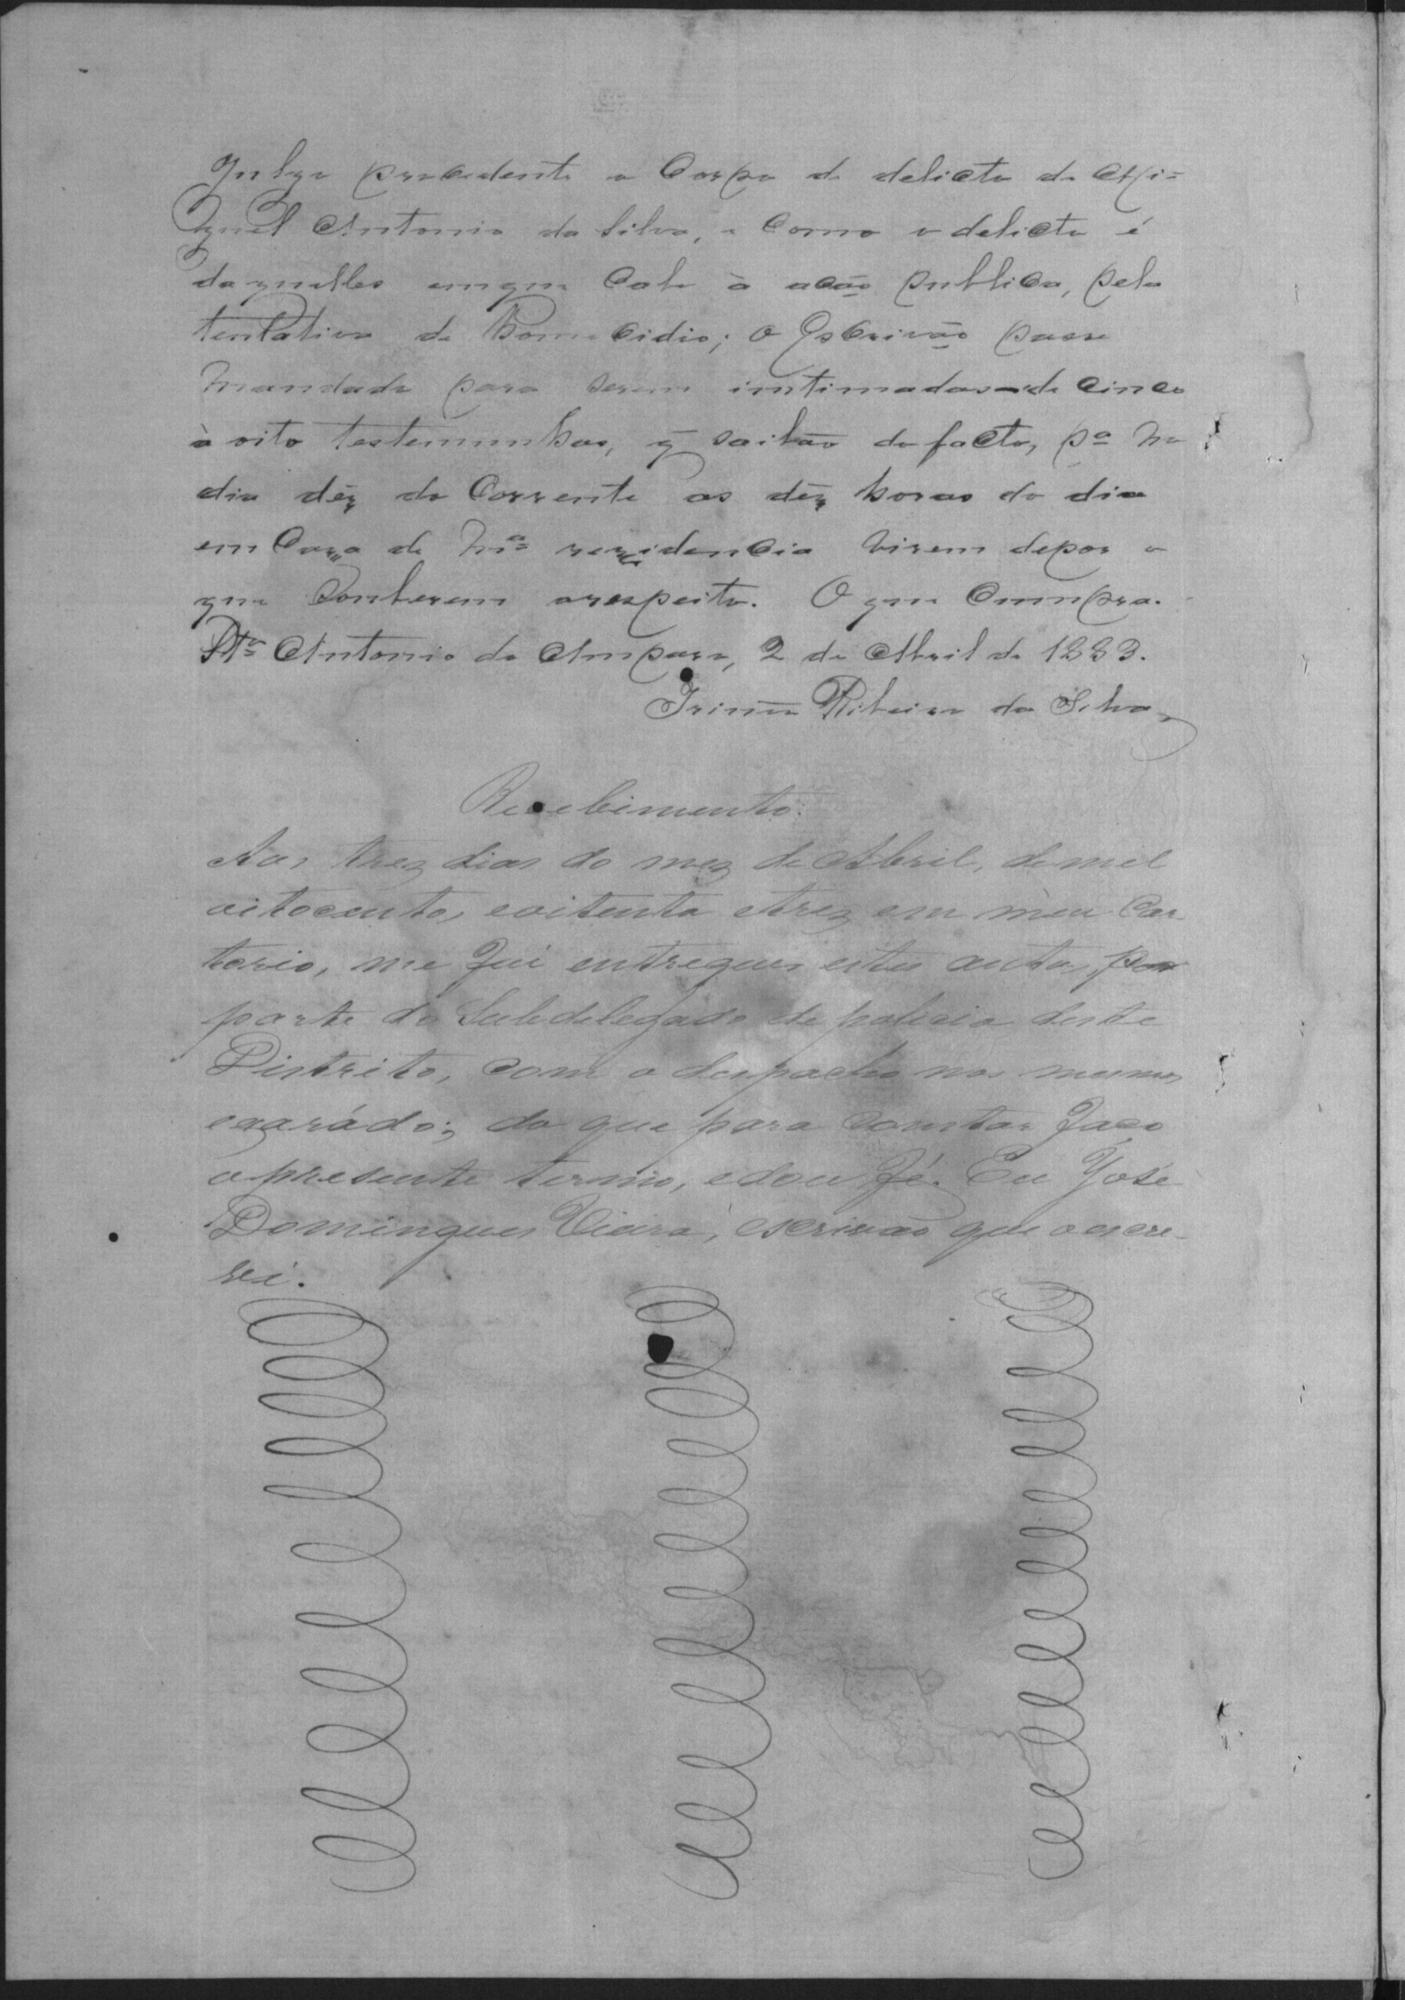 Julgo procedente o Corpo de delicto de Mi=
guel Antonio da Silva, e como o delicto é
daquelles em que Cabe à acão publica, pela
tentativa de homecidio; O Escrivão passe
Mandado para serem intimadas de cinco
à oito testemunhas, q̃ saibão do facto, pª no
dia dez do Corrente as dez horas do dia
em Caza de mª rezidencia virem depor o
que Souberem arespeito. O que Cumpra.
Stº Antonio do Amparo, 2 de Abril de 1883.
Ribeiro da Silva
Recebimento.
Aos trez dias do mez de Abril, de mil
oitocentos, eoitenta etrez em meu Car
torio, me fui entregues estes autos, por
parte do Subdelegado de policia deste
Distrito, com o despacho nos mesmos
exarádo; do que para constar faço
o presente termo, edou fé. Eu José
Domingues Vieira, escrivão que o escre-
vi.